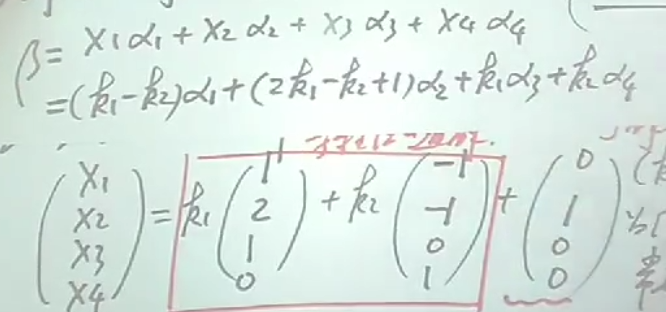 β = x₁α₁ + x₂α₂ + x₃α₃ + x₄α₄
= (k₁-k₂)α₁ + (2k₁-k₂+1)α₂ + k₁α₃ + k₂α₄
(x₁ x₂ x₃ x₄) = k₁(1 2 1 0) + k₂(-1 -1 0 1) + (0 1 0 0)